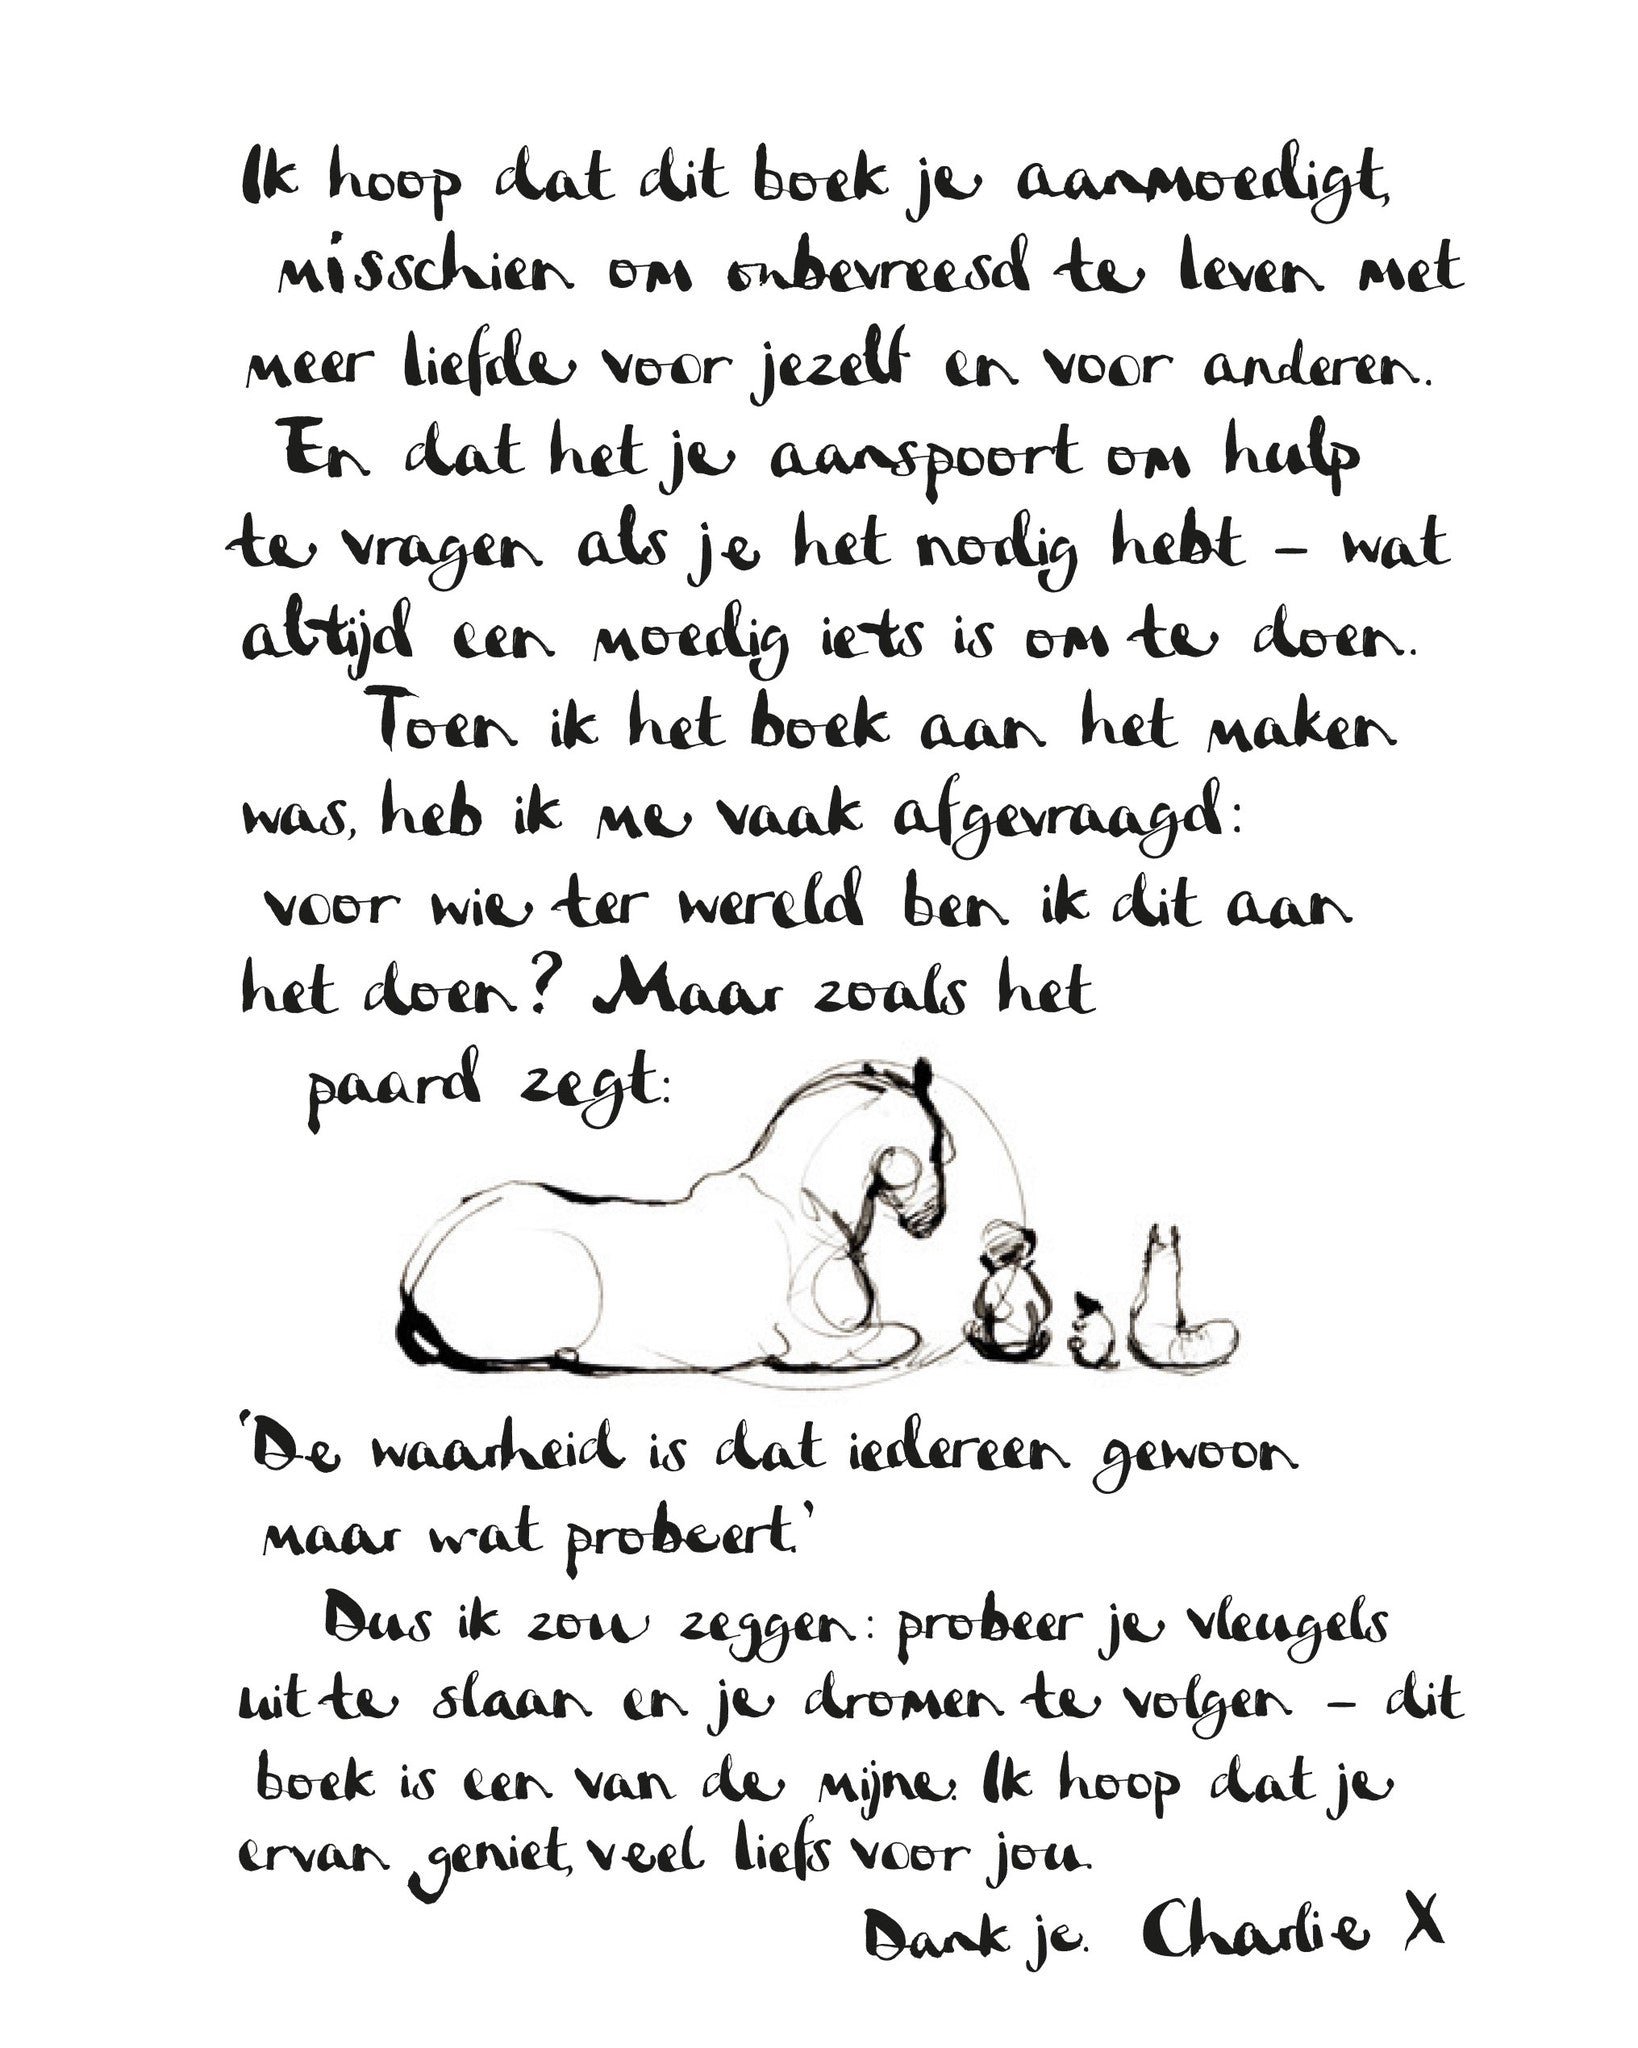 Ik hoop dat dit boek je aanmoedigt,
misschien om onbevreesd te leven met
meer liefde voor jezelf en voor anderen.
En dat het je aanspoort om hulp
te vragen als je het nodig hebt – wat
altijd een moedig iets is om te doen.
Toen ik het boek aan het maken
was, heb ik me vaak afgevraagd:
voor wie ter wereld ben ik dit aan
het doen? Maar zoals het
paard zegt:
'De waarheid is dat iedereen gewoon
maar wat probeert.'
Dus ik zou zeggen: probeer je vleugels
uit te slaan en je dromen te volgen – dit
boek is een van de mijne. Ik hoop dat je
ervan geniet, veel liefs voor jou.
Dank je. Charlie X